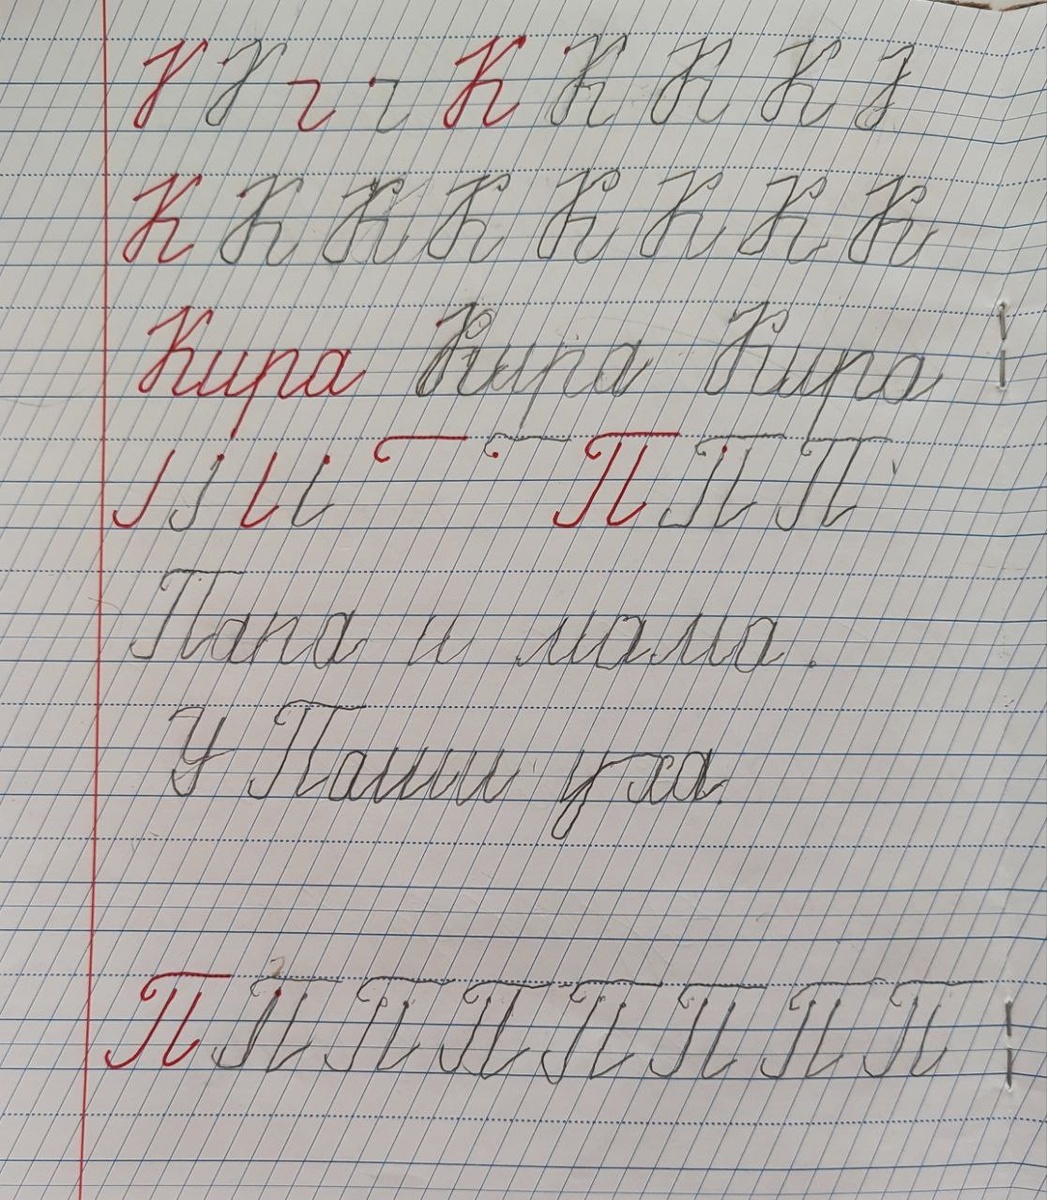 К К К К
К К К К К К К К
Кира Кира Кира
П П П
Папа и мама.
У Паши уха.
П П П П П П П П